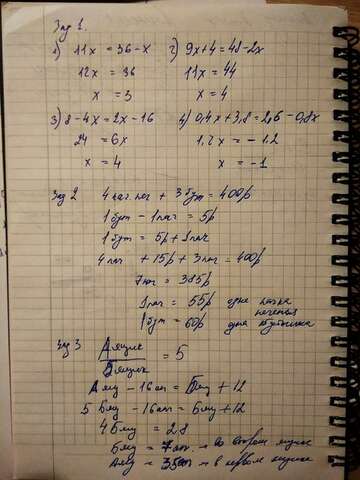 Зад 1.
1) 11x = 36 - x 2) 9x + 4 = 48 - 2x
12x = 36 11x = 44
x = 3 x = 4
3) 8 - 4x = 2x - 16 4) 0,4x + 3,8 = 2,6 - 0,8x
24 = 6x 1,2x = -1,2
x = 4 x = -1
Зад 2 4 пач печ + 3 бут = 400р
1 бут - 1 пач = 5р
1 бут = 5р + 1 пач
4 пач + 15р + 3 пач = 400р
7 пач = 385р
1 пач = 55р одна пачка печенья
1 бут = 60р одна бутылка
Зад 3 A ящик / Б ящик = 5
А ящ - 16 шт = Б ящ + 12
5 Б ящ - 16 шт = Б ящ + 12
4 Б ящ = 28
Б ящ = 7 шт. - во втором ящике
А ящ = 35 шт - в первом ящике